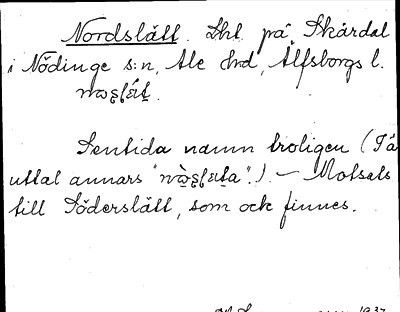 Nordslätt. Lht. på Skårdal
i Nödinge s:n, Ale hrd, Älfsborgs l.
Sentida namn troligen (Få
uttal annars
Motsats
till Söderslätt, som ock finnes.
1937